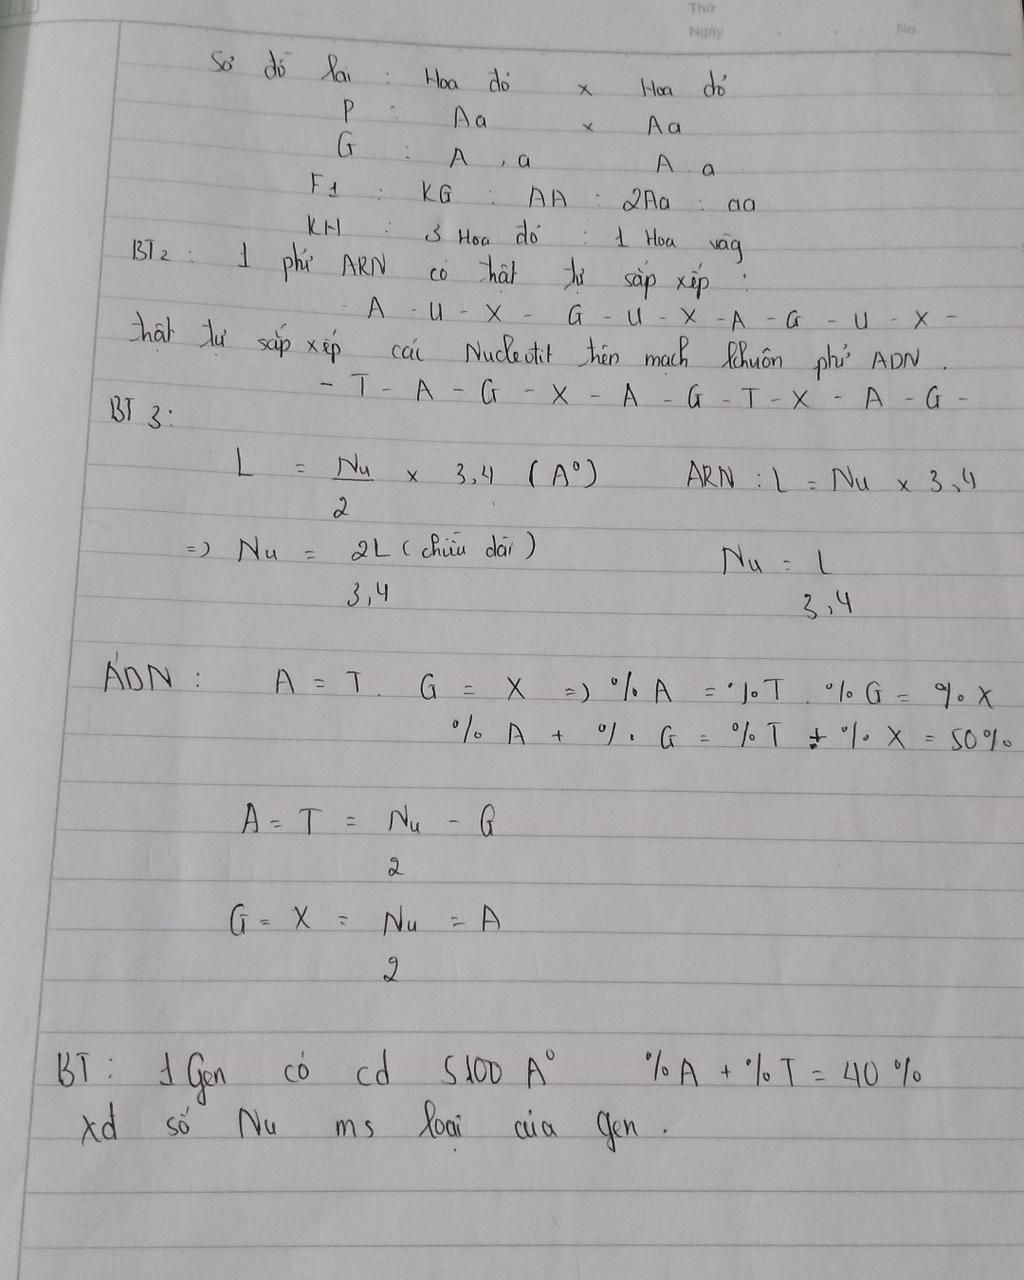 Thứ
Ngày . . No.
Sơ đồ lai : Hoa đỏ x Hoa đỏ
P : Aa x Aa
G : A , a A a
F1 : KG : AA : 2Aa : aa
KH : 3 Hoa đỏ : 1 Hoa vàg
BT2 : 1 phtử ARN có trật tự sắp xếp :
- A - U - X - G - U - X - A - G - U - X -
trật tự sắp xếp các Nucleotit trên mạch khuôn phtử ADN .
- T - A - G - X - A - G - T - X - A - G -
BT 3 :
L = Nu/2 x 3,4 (A°) ARN : L = Nu x 3,4
=) Nu = 2L (chiều dài) / 3,4 Nu = L / 3,4
ADN : A = T . G = X =) % A = % T . % G = % X
% A + % G = % T + % X = 50%
A = T = Nu/2 - G
G = X = Nu/2 = A
BT : 1 Gen có cd 5100 A° % A + % T = 40 %
xđ số Nu ms loại của gen .